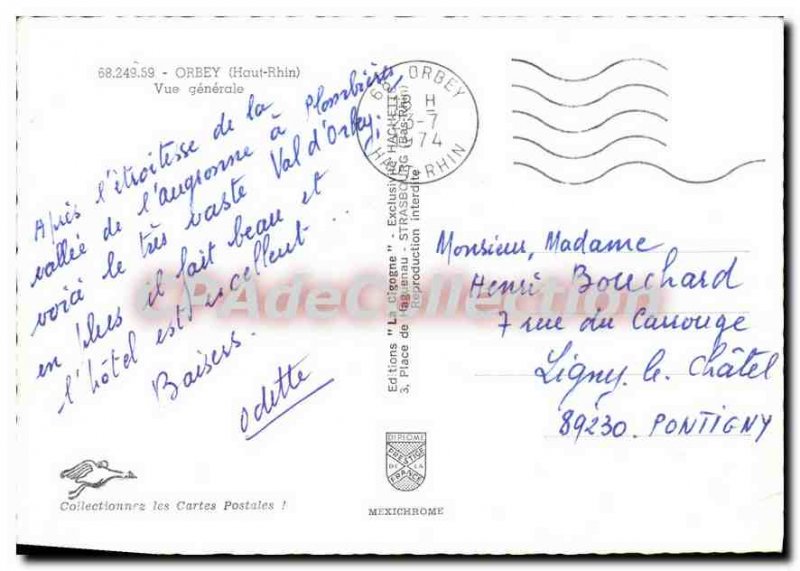 68.249.59 - ORBEY (Haut-Rhin)
Vue générale
Après l'étroitesse de la
vallée de l'augronne à Plombières,
voici le très vaste Val d'Orbey;
en plus il fait beau et
l'hôtel est excellent...
Baisers.
Odette
Collectionnez les Cartes Postales !
68 ORBEY
H
3-7
1974
HAUT-RHIN
Editions "La Cigogne" - Exclusivité HACHETTE
3, Place de Haguenau - STRASBOURG (Bas-Rhin)
Reproduction interdite
DIPLOME
PRESTIGE
DE LA
FRANCE
MEXICHROME
Monsieur, Madame
Henri Bouchard
7 rue du Carrouge
Ligny-le-Châtel
89230. PONTIGNY
CPAdeCollection